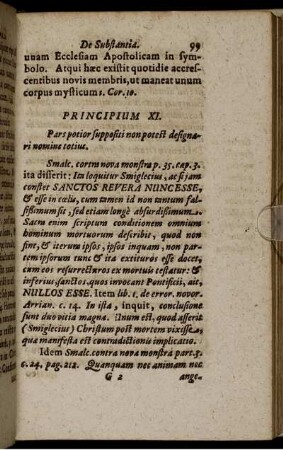 De Substantia. 99
unam Ecclesiam Apostolicam in sym-
bolo. Atqui hæc existit quotidie accres-
centibus novis membris, ut maneat unum
corpus mysticum 1. Cor. 10.
PRINCIPIUM XI.
Pars potior suppositi non potest designa-
ri nomine totius.
Smalc. contra nova monstra p. 35. cap. 3.
ita disserit: Ita loquitur Smiglecius, ac si jam
constet SANCTOS REVERA NUNC ESSE,
& esse in cœlis, cum tamen id non tantum fal-
sissimum sit, sed etiam longè absurdissimum.
Sacra enim scriptura conditionem omnium
hominum mortuorum describit, quod non
sint, & iterum ipsos, ipsos inquam, non par-
tem ipsorum tunc & ita extituros esse docet,
cum eos resurrecturos ex mortuis testatur: &
inferius, sanctos, quos invocant Pontificii, ait,
NULLOS ESSE. Item lib. 1. de error. novor.
Arrian. c. 14. In ista, inquit, conclusione
sunt duo vitia magna. Unum est, quod asserit
(Smiglecius) Christum post mortem vixisse,
quæ manifesta est contradictionis implicatio.
Idem Smalc. contra nova monstra part. 3.
c. 24. pag. 212. Quanquam nec animam nec
G 2 ange-